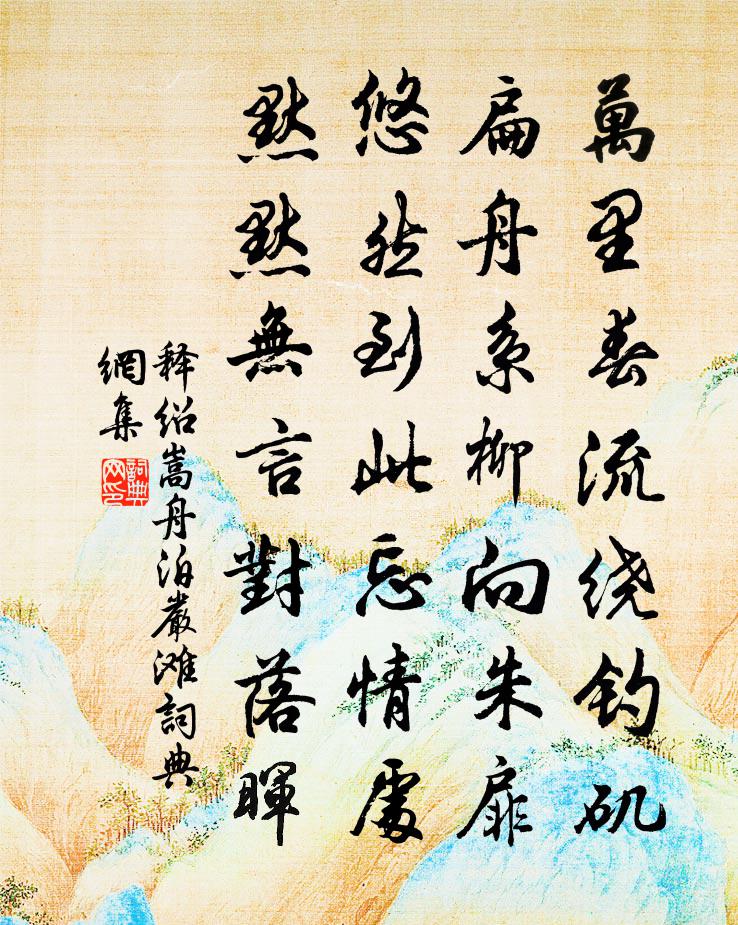 萬里春流绕钓矶
扁舟系柳向朱扉
悠然到此忘情處
默默無言對落暉
释绍嵩舟泊嚴滩詞典
網集
詞典網印